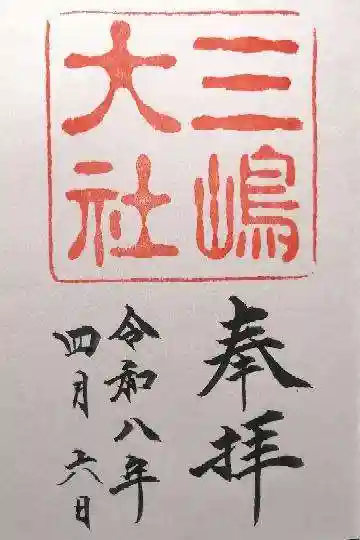 三嶋
大社
奉拝
令和八年
四月六日